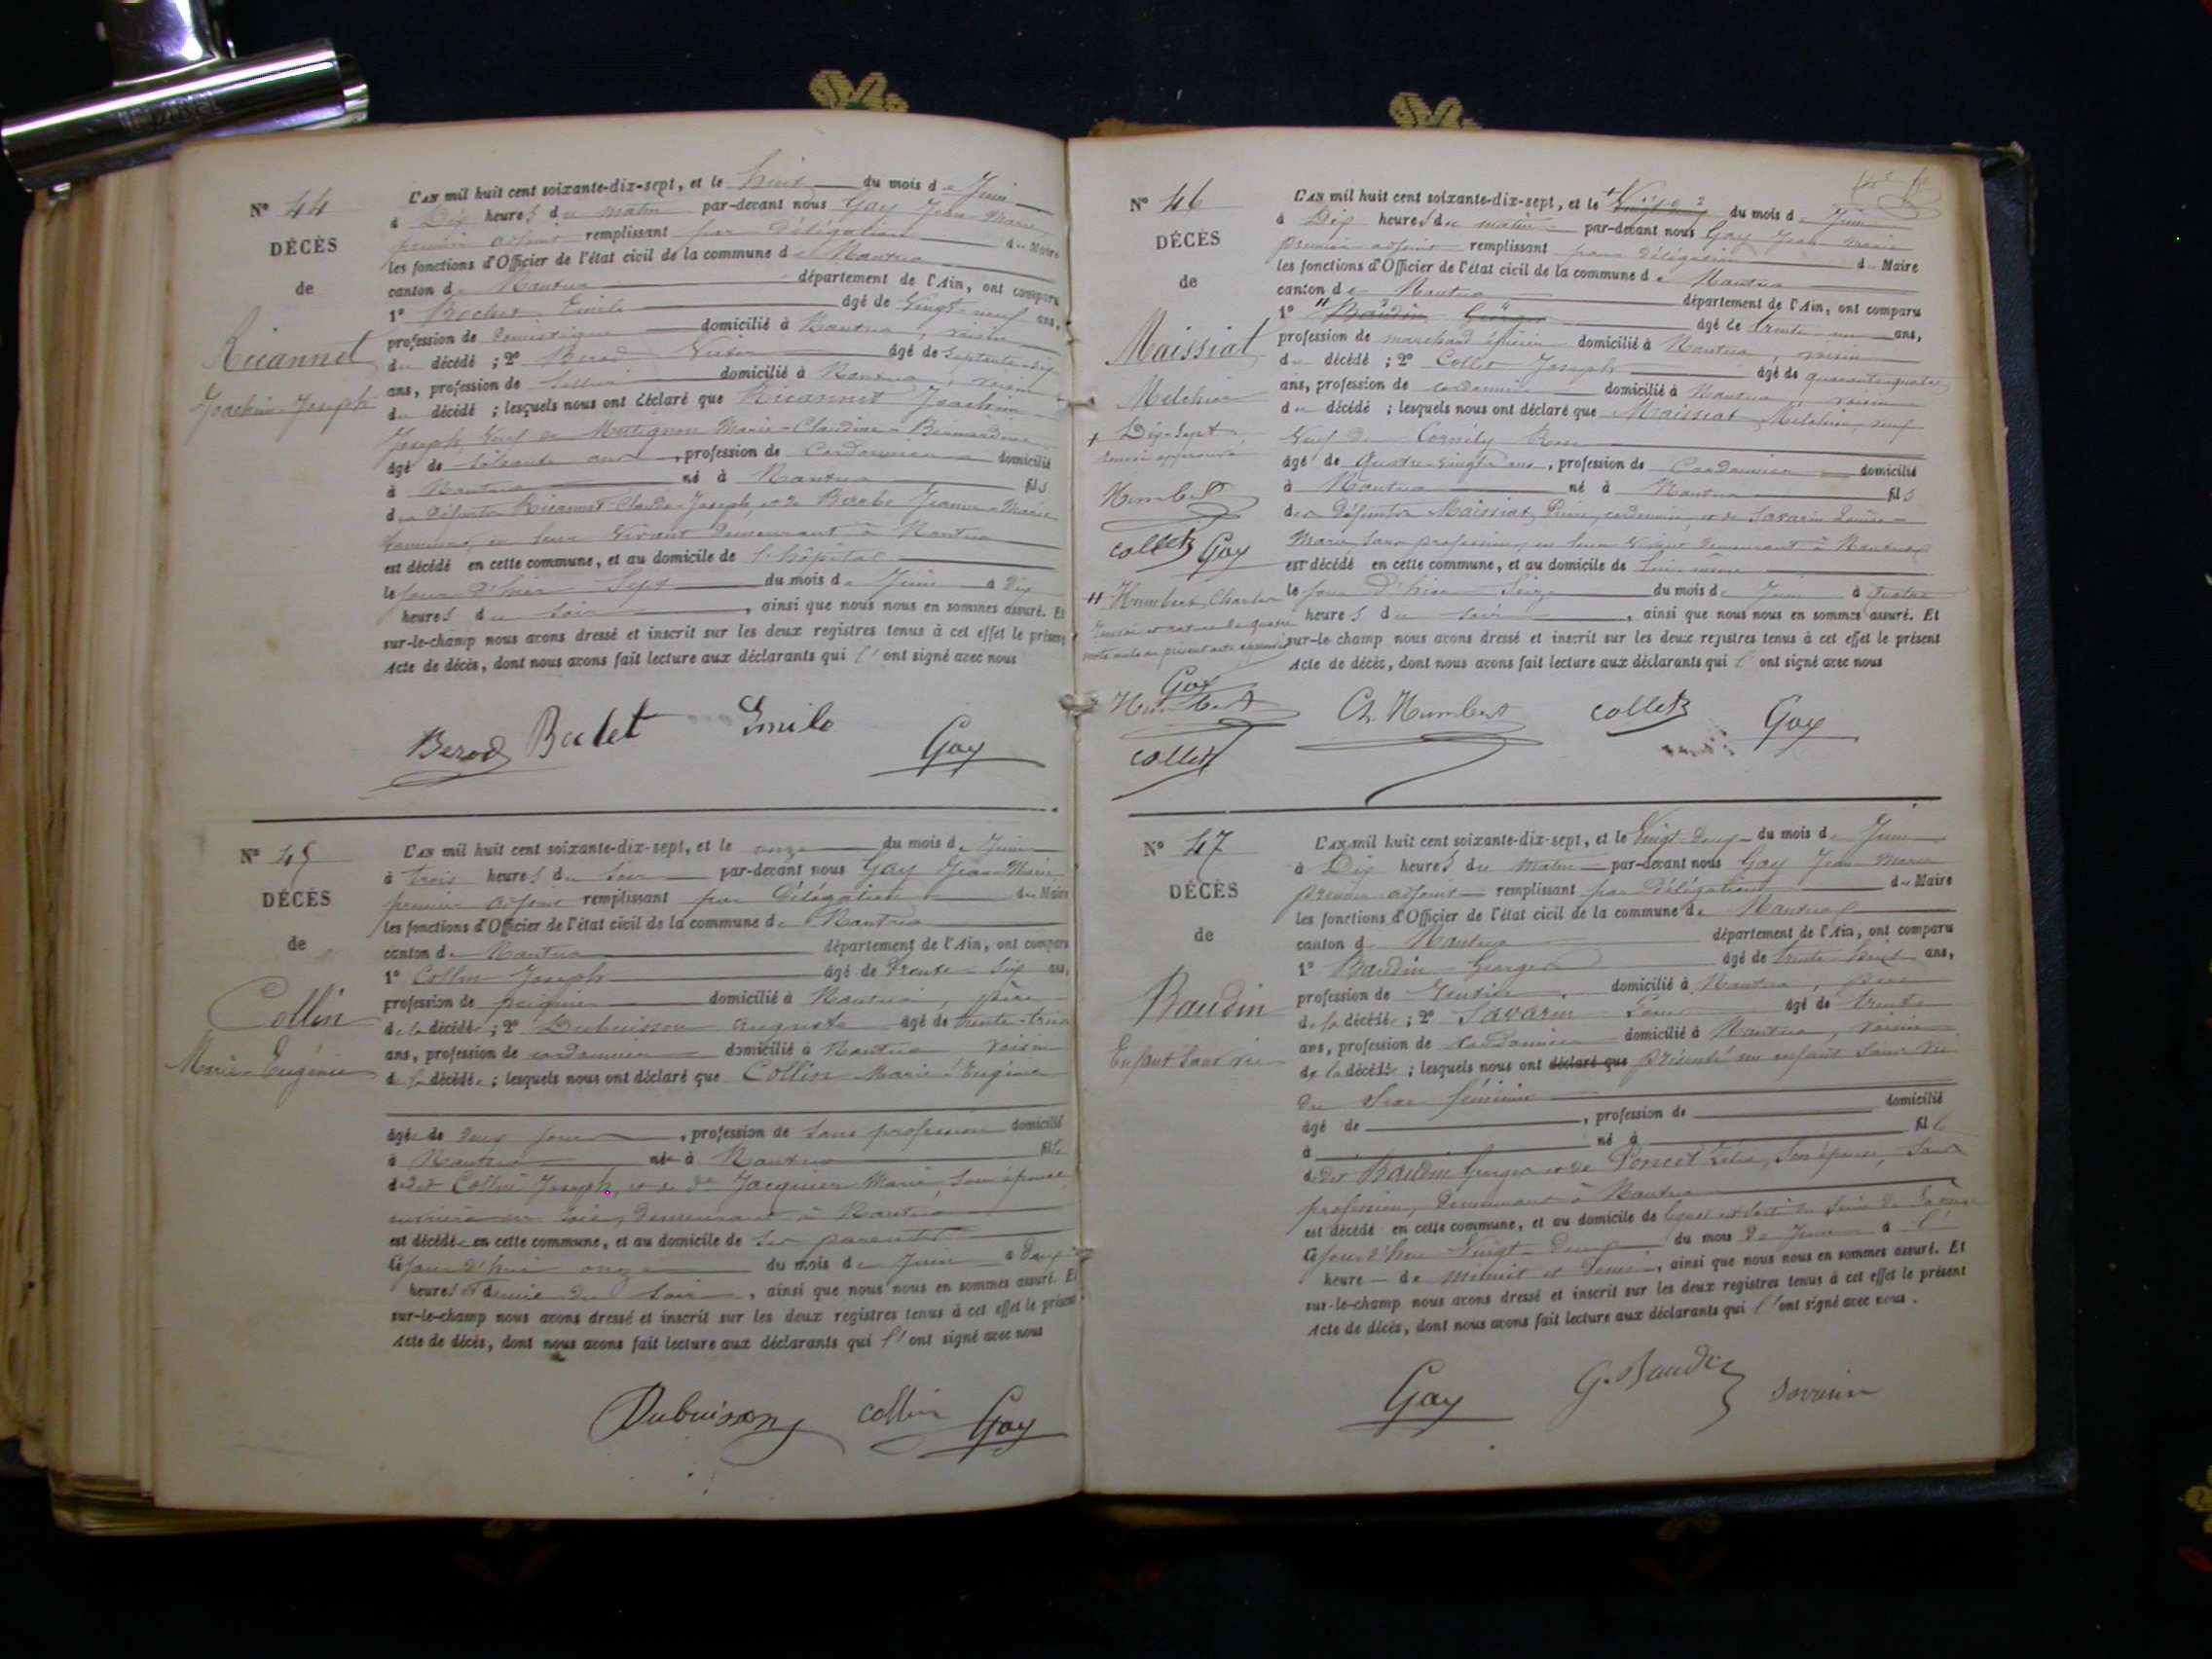 N° 44
DÉCÈS
de
Ricannet
Joachim-Joseph
L'AN mil huit cent soixante-dix-sept, et le huit du mois de Juin
à Dix heures du matin par-devant nous Gay Jean-Marie
premier adjoint remplissant par Délégation du Maire
les fonctions d'Officier de l'état civil de la commune de Nantua
canton de Nantua département de l'Ain, ont comparu
1° Emile âgé de Vingt-neuf ans,
profession de domestique domicilié à Nantua, voisin
du décédé ; 2° Berod Victor âgé de Septante-dix
ans, profession de Sellier domicilié à Nantua, voisin
du décédé ; lesquels nous ont déclaré que Ricannet Joachim
Joseph, Veuf de Marie-Claudine-Bernardine
âgé de soixante ans, profession de Cordonnier domicilié
à Nantua né à Nantua fils
des défunts Ricannet Claude-Joseph, et de Jeanne-Marie
en leur vivant demeurant à Nantua
est décédé en cette commune, et au domicile de l'hôpital
le jour d'hier Sept du mois de Juin à Dix
heures du soir, ainsi que nous nous en sommes assuré. Et
sur-le-champ nous avons dressé et inscrit sur les deux registres tenus à cet effet le présent
Acte de décès, dont nous avons fait lecture aux déclarants qui l'ont signé avec nous
Berod Emile Gay
N° 45
DÉCÈS
de
Collin
Marie-Eugénie
L'AN mil huit cent soixante-dix-sept, et le onze du mois de Juin
à trois heures du soir par-devant nous Gay Jean-Marie
premier adjoint remplissant par Délégation du Maire
les fonctions d'Officier de l'état civil de la commune de Nantua
canton de Nantua département de l'Ain, ont comparu
1° Collin Joseph âgé de Trente-Six ans,
profession de peignier domicilié à Nantua, père
de la décédée ; 2° Dubuisson Auguste âgé de trente-trois
ans, profession de cordonnier domicilié à Nantua voisin
de la décédée ; lesquels nous ont déclaré que Collin Marie-Eugénie
âgée de deux jours, profession de Sans profession domicilié
à Nantua née à Nantua fille
dudit Collin Joseph, et de Jacquier Marie, son épouse,
ouvrière en soie, demeurant à Nantua
est décédée en cette commune, et au domicile de ses parents
Ce jour d'hui onze du mois de Juin à deux
heures et demie du soir, ainsi que nous nous en sommes assuré. Et
sur-le-champ nous avons dressé et inscrit sur les deux registres tenus à cet effet le présent
Acte de décès, dont nous avons fait lecture aux déclarants qui l'ont signé avec nous
Dubuisson collin Gay
N° 46
DÉCÈS
de
Maissiat
Melchior
+ Dix-Sept
renvoi approuvé
Humbert
collet Gay
" Humbert Charles
Renvoi et rature de quatre
mots nuls au présent acte approuvés
Gay
Humbert
collet
L'AN mil huit cent soixante-dix-sept, et le + du mois de Juin
à Dix heures du matin par-devant nous Gay Jean Marie
premier adjoint remplissant par Délégation du Maire
les fonctions d'Officier de l'état civil de la commune de Nantua
canton de Nantua département de l'Ain, ont comparu
1° " Baudin Georges âgé de trente-un ans,
profession de marchand épicier domicilié à Nantua, voisin
du décédé ; 2° Collet Joseph âgé de quarante-quatre
ans, profession de cordonnier domicilié à Nantua, voisin
du décédé ; lesquels nous ont déclaré que Maissiat Melchior, veuf
Veuf de Cornély Rose
âgé de quatre-vingts ans, profession de Cordonnier domicilié
à Nantua né à Nantua fils
des défunts Maissiat Pierre, cordonnier, et de Savarin Louise-
Marie, sans profession, en leur vivant demeurant à Nantua
est décédé en cette commune, et au domicile de lui-même
le jour d'hier Seize du mois de Juin à quatre
heures du soir, ainsi que nous nous en sommes assuré. Et
sur-le-champ nous avons dressé et inscrit sur les deux registres tenus à cet effet le présent
Acte de décès, dont nous avons fait lecture aux déclarants qui l'ont signé avec nous
Ch. Humbert collet Gay
N° 47
DÉCÈS
de
Baudin
Enfant Sans vie
L'AN mil huit cent soixante-dix-sept, et le Vingt-deux du mois de Juin
à Dix heures du matin par-devant nous Gay Jean Marie
premier adjoint remplissant par Délégation du Maire
les fonctions d'Officier de l'état civil de la commune de Nantua
canton de Nantua département de l'Ain, ont comparu
1° Baudin Georges âgé de trente-huit ans,
profession de Rentier domicilié à Nantua, père
de la décédée ; 2° Savarin âgé de trente
ans, profession de Cordonnier domicilié à Nantua, voisin
de la décédée ; lesquels nous ont déclaré que présenté un enfant sans vie
du Sexe féminin
âgé de , profession de domicilié
à né à fille
dudit Baudin Georges et de Poncet Zélie, Son épouse, Sans
profession, demeurant à Nantua
est décédé en cette commune, et au domicile de lequel est sorti du sein de sa mère
Ce jour d'hui Vingt-Deux du mois de Juin à l'
heure de minuit et demi, ainsi que nous nous en sommes assuré. Et
sur-le-champ nous avons dressé et inscrit sur les deux registres tenus à cet effet le présent
Acte de décès, dont nous avons fait lecture aux déclarants qui l'ont signé avec nous.
Gay G. Baudin Savarin